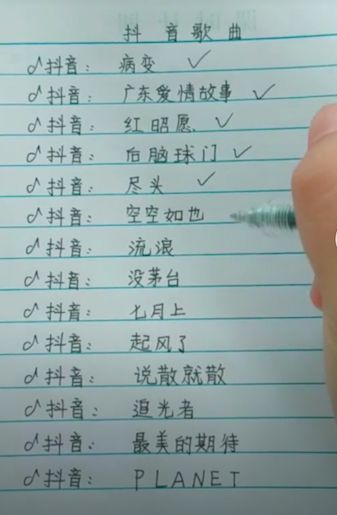 抖音歌曲
抖音：病变 ✓
抖音：广东爱情故事 ✓
抖音：红昭愿 ✓
抖音：后脑球门 ✓
抖音：尽头 ✓
抖音：空空如也
抖音：流浪
抖音：没茅台
抖音：七月上
抖音：起风了
抖音：说散就散
抖音：追光者
抖音：最美的期待
抖音：PLANET